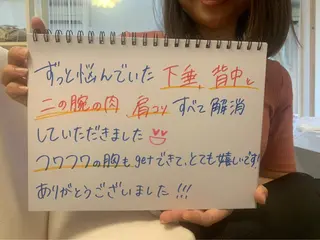 ずっと悩んでいた 下垂、背中と
二の腕の肉 肩コリ すべて解消
していただきました
フワフワの胸も getできて、とても嬉しいです!
ありがとうございました!!!